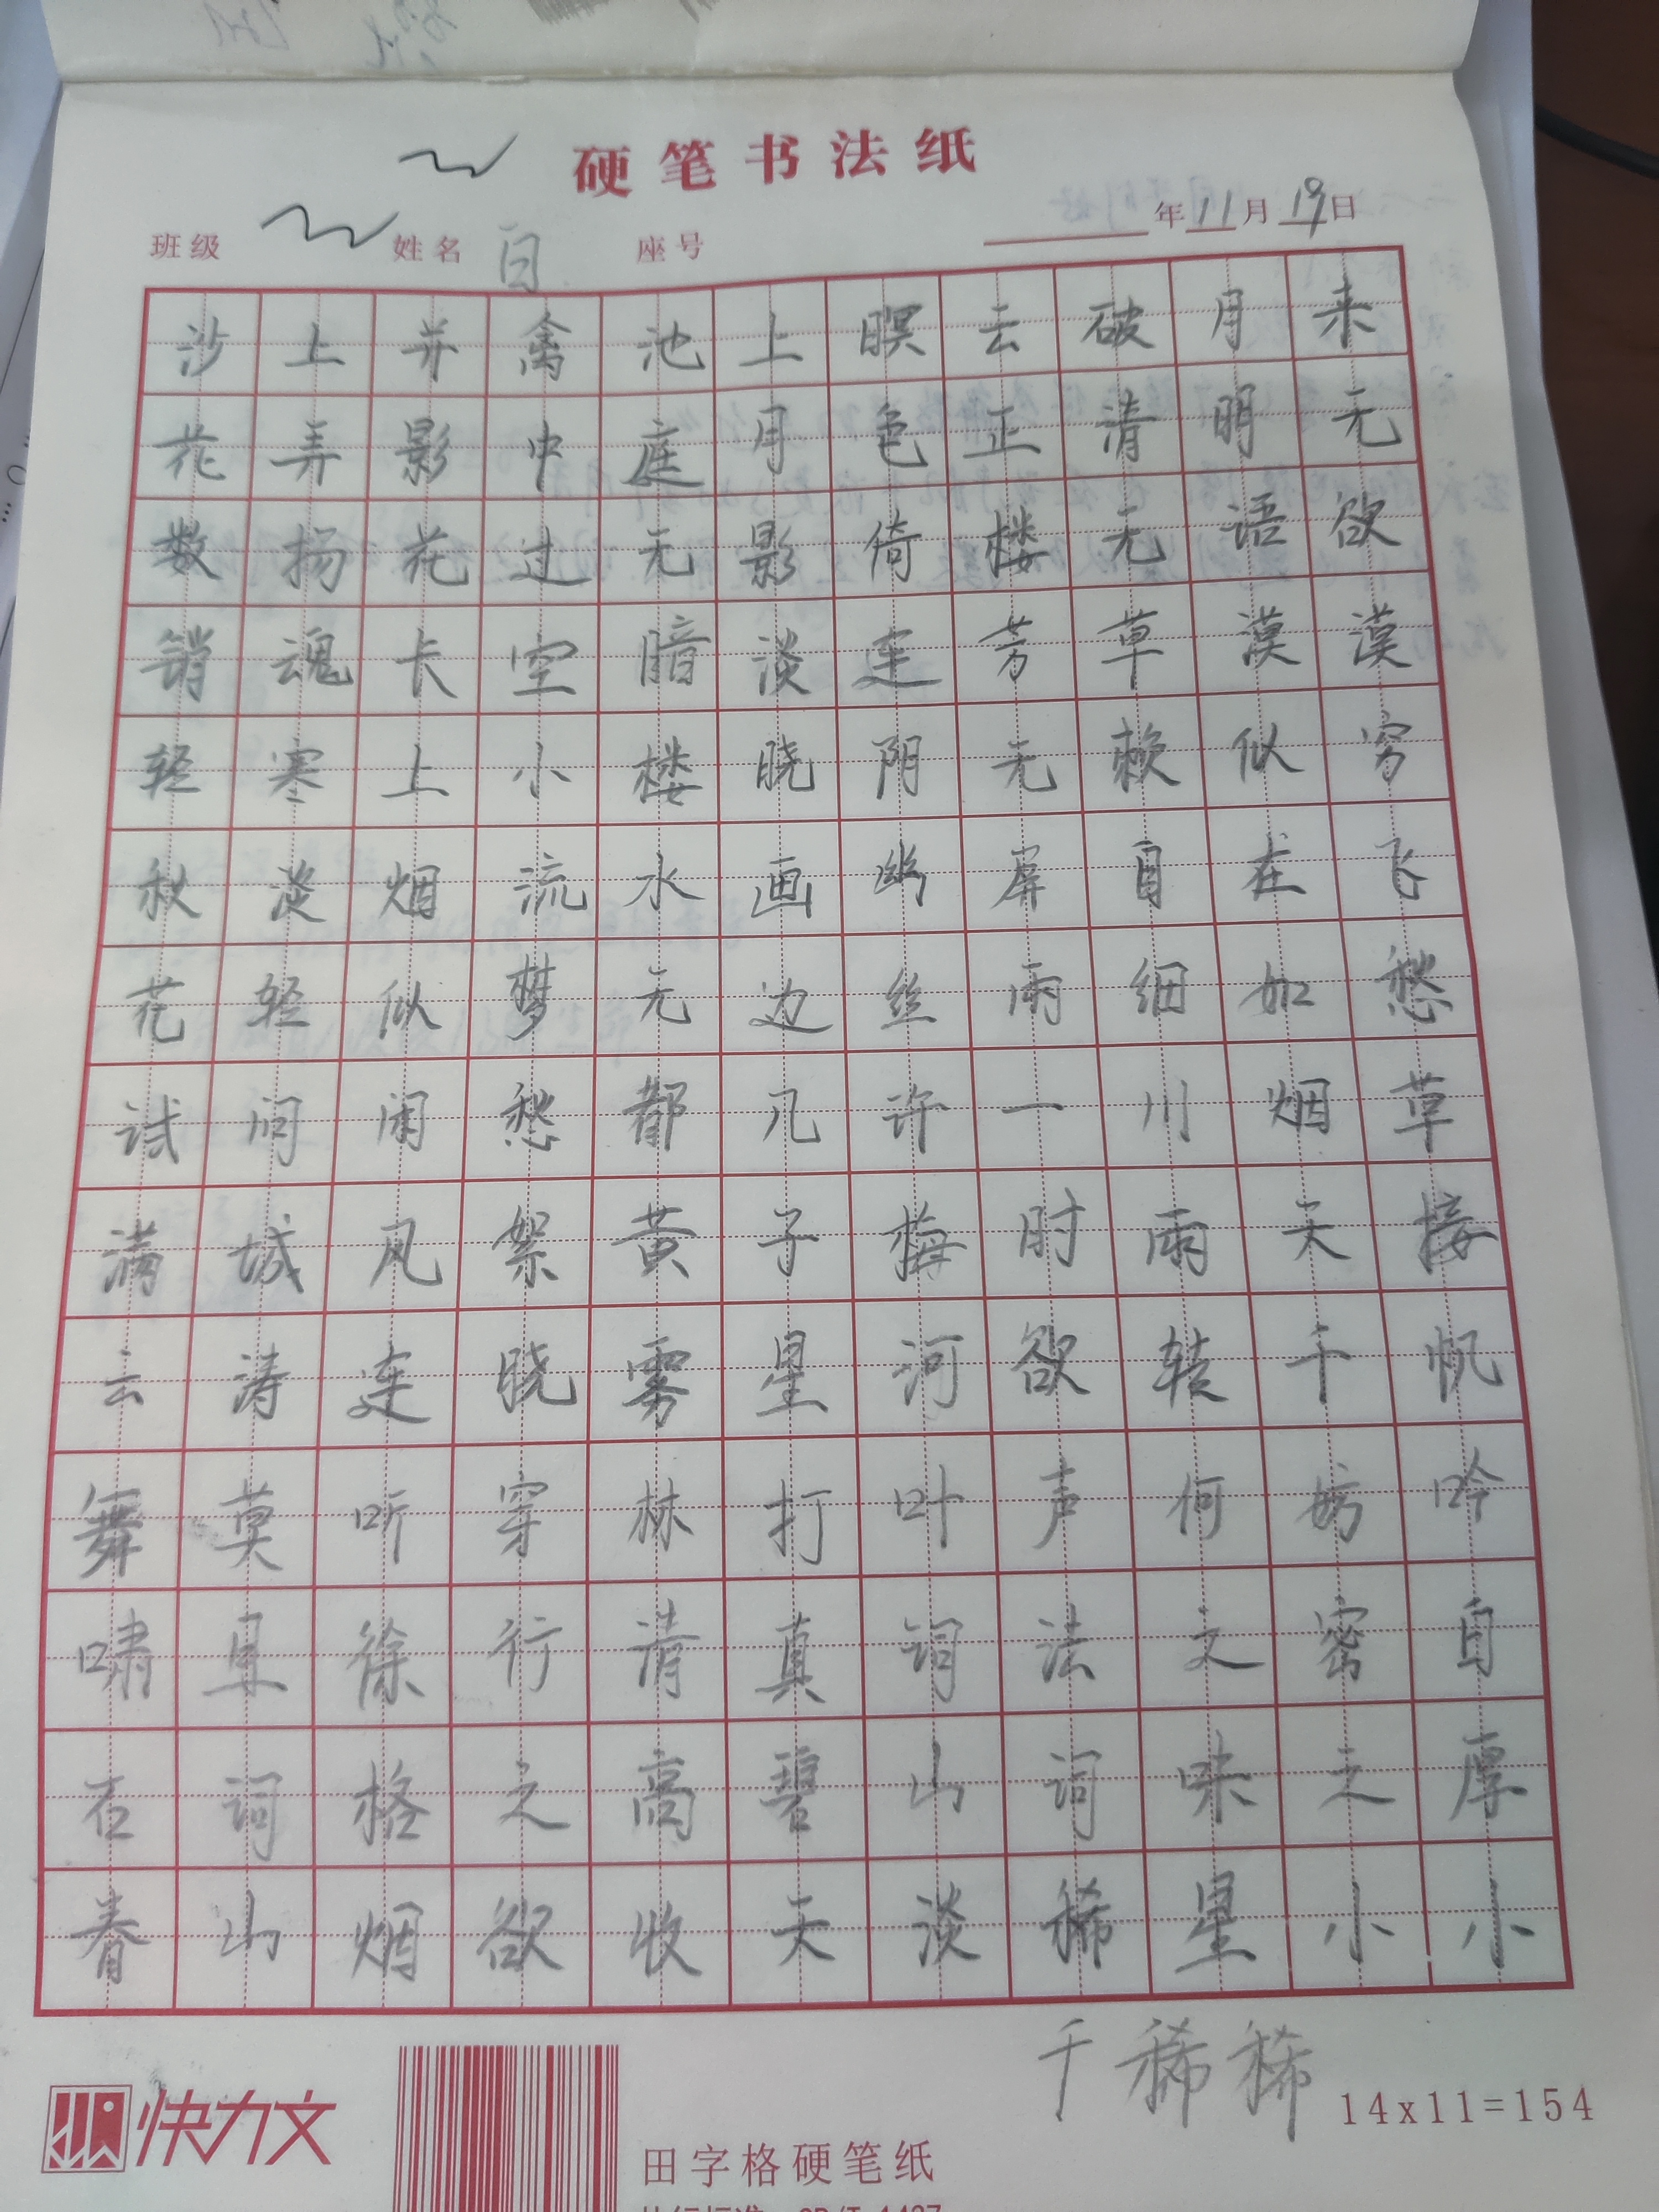 硬笔书法纸
班级 姓名 白 座号 年11月19日
沙上并禽池上暝云破月来
花弄影中庭月色正清明无
数扬花过无影倚楼无语欲
销魂长空暗淡连芳草漠漠
轻寒上小楼晓阴无赖似穷
秋淡烟流水画幽屏自在飞
花轻似梦无边丝雨细如愁
试问闲愁都几许一川烟草
满城风絮黄子梅时雨天接
云涛连晓雾星河欲转千帆
舞莫听穿林打叶声何妨吟
啸且徐行清真词法之密白
石词格之高碧山词味之厚
春山烟欲收天淡稀星小小
千稀稀
14x11=154
快力文
田字格硬笔纸